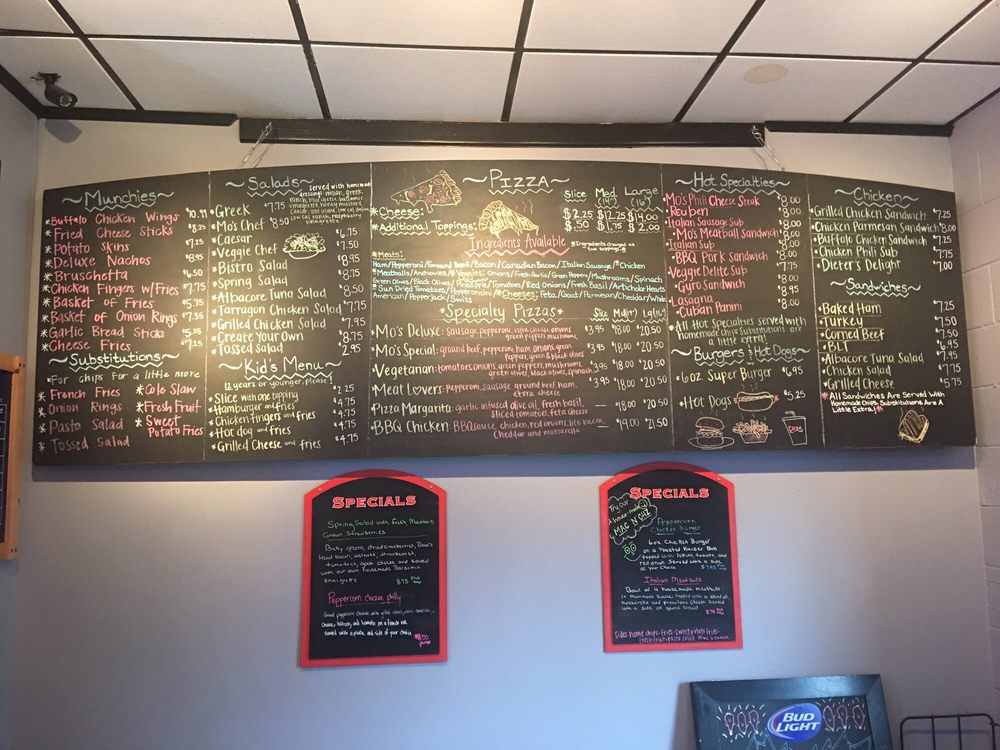 ~Munchies~
*Buffalo Chicken Wings $10.99
*Fried Cheese Sticks $8.25
*Potato Skins $7.25
*Deluxe Nachos $8.95
*Bruschetta $6.50
*Chicken Fingers w/Fries $7.75
*Basket of Fries $5.75
*Basket of Onion Rings $7.55
*Garlic Bread Sticks $5.25
*Cheese Fries $7.25
~Substitutions~
*For chips For a little more
*French Fries *Cole Slaw
*Onion Rings *Fresh Fruit
*Pasta Salad *Sweet Potato Fries
*Tossed Salad
~Salads~
served with homemade
*Greek $7.75
*Mo's Chef $8.50
*Caesar $6.75
*Veggie Chef $7.50
*Bistro Salad $8.95
*Spring Salad $8.75
*Albacore Tuna Salad $8.50
*Tarragon Chicken Salad $7.75
*Grilled Chicken Salad $7.95
*Create Your Own $8.75
*Tossed Salad 2.95
~Kid's Menu~
12 years or younger, please!
*Slice with one topping $2.25
*Hamburger and fries $4.75
*Chicken fingers and fries $4.75
*Hot dog and fries $4.75
*Grilled Cheese and fries $4.75
~Pizza~
Slice Med. (14") Large (16")
*Cheese: $2.25 $12.25 $14.00
*Additional Toppings: $.50 $1.75 $2.00
Ingredients Available
*Meats:
Ham/Pepperoni/Ground Beef/Bacon/Canadian Bacon/Italian Sausage/*Chicken
*Meatballs/Anchovies/*Veggies: Onions/Fresh Garlic/Green Peppers/Mushrooms/Spinach
Green Olives/Black Olives/Pineapple/Tomatoes/Red Onions/Fresh Basil/Artichoke Hearts
*Sun Dried Tomatoes/Pepperoncini/*Cheeses: Feta/Goat/Parmesan/Cheddar/White
American/Pepperjack/Swiss
*Specialty Pizzas*
Slice Md(14") La(16")
*Mo's Deluxe: Sausage, pepperoni, extra cheese, onions, green peppers, mushrooms $3.95 $18.00 $20.50
*Mo's Special: ground beef, pepperoni, ham, onions, green peppers, green & black olives $3.95 $18.00 $20.50
*Vegetarian: tomatoes, onions, green peppers, mushrooms, green olives, black olives, spinach $3.95 $18.00 $20.50
*Meat Lovers: pepperoni, sausage, ground beef, ham, extra cheese $3.95 $18.00 $20.50
*Pizza Margarita: garlic infused olive oil, fresh basil, sliced tomatoes, feta cheese — $18.00 $20.50
*BBQ Chicken: BBQ sauce, chicken, red onions, bits bacon, Cheddar and mozzarella — $19.00 $21.50
~Hot Specialties~
*Mo's Phili Cheese Steak $8.00
*Reuben $8.00
*Italian Sausage Sub $8.00
*Mo's Meatball Sandwich $8.00
*Italian Sub $8.00
*BBQ Pork Sandwich $8.00
*Veggie Delite Sub $7.75
*Gyro Sandwich $8.95
*Lasagna $8.00
*Cuban Panini $8.00
*All Hot Specialties served with
homemade chips Substitutions are
a little extra!
~Burgers & Hot Dogs~
*6oz Super Burger $6.95
*Hot Dogs $5.25
~Chicken~
*Grilled Chicken Sandwich $7.25
*Chicken Parmesan Sandwich $8.00
*Buffalo Chicken Sandwich $7.25
*Chicken Phili Sub $7.25
*Dieter's Delight $7.00
~Sandwiches~
*Baked Ham $7.25
*Turkey $7.50
*Corned Beef $7.50
*BLT $6.95
*Albacore Tuna Salad $7.95
*Chicken Salad $7.75
*Grilled Cheese $5.75
*All Sandwiches Are Served With
Homemade Chips. Substitutions Are A
Little Extra!*
SPECIALS
Spring Salad with Fresh Mountain
Grown Strawberries
Baby greens, dried cranberries, Boar's
Head bacon, walnuts, strawberries,
tomatoes, goat cheese and served
with our own housemade Balsamic
Vinaigrette 8.95
Peppercorn chicken philly
served with a pickle and side of your choice $8.50
SPECIALS
Try our
house-made
MAC N CHZ
Peppercorn
Chicken Burger
6oz Chicken Burger
on a Toasted Kaiser Bun
topped with lettuce, tomato, and
red onion. Served with a side
of your choice
Italian Meatballs
Bowl of 4 housemade meatballs
in marinara sauce topped with a blend of
mozzarella and provolone cheese. Served
with a side of garlic bread.
Sides: home chips-fries-sweet potato fries-
fresh fruit-pasta salad
BUD
LIGHT